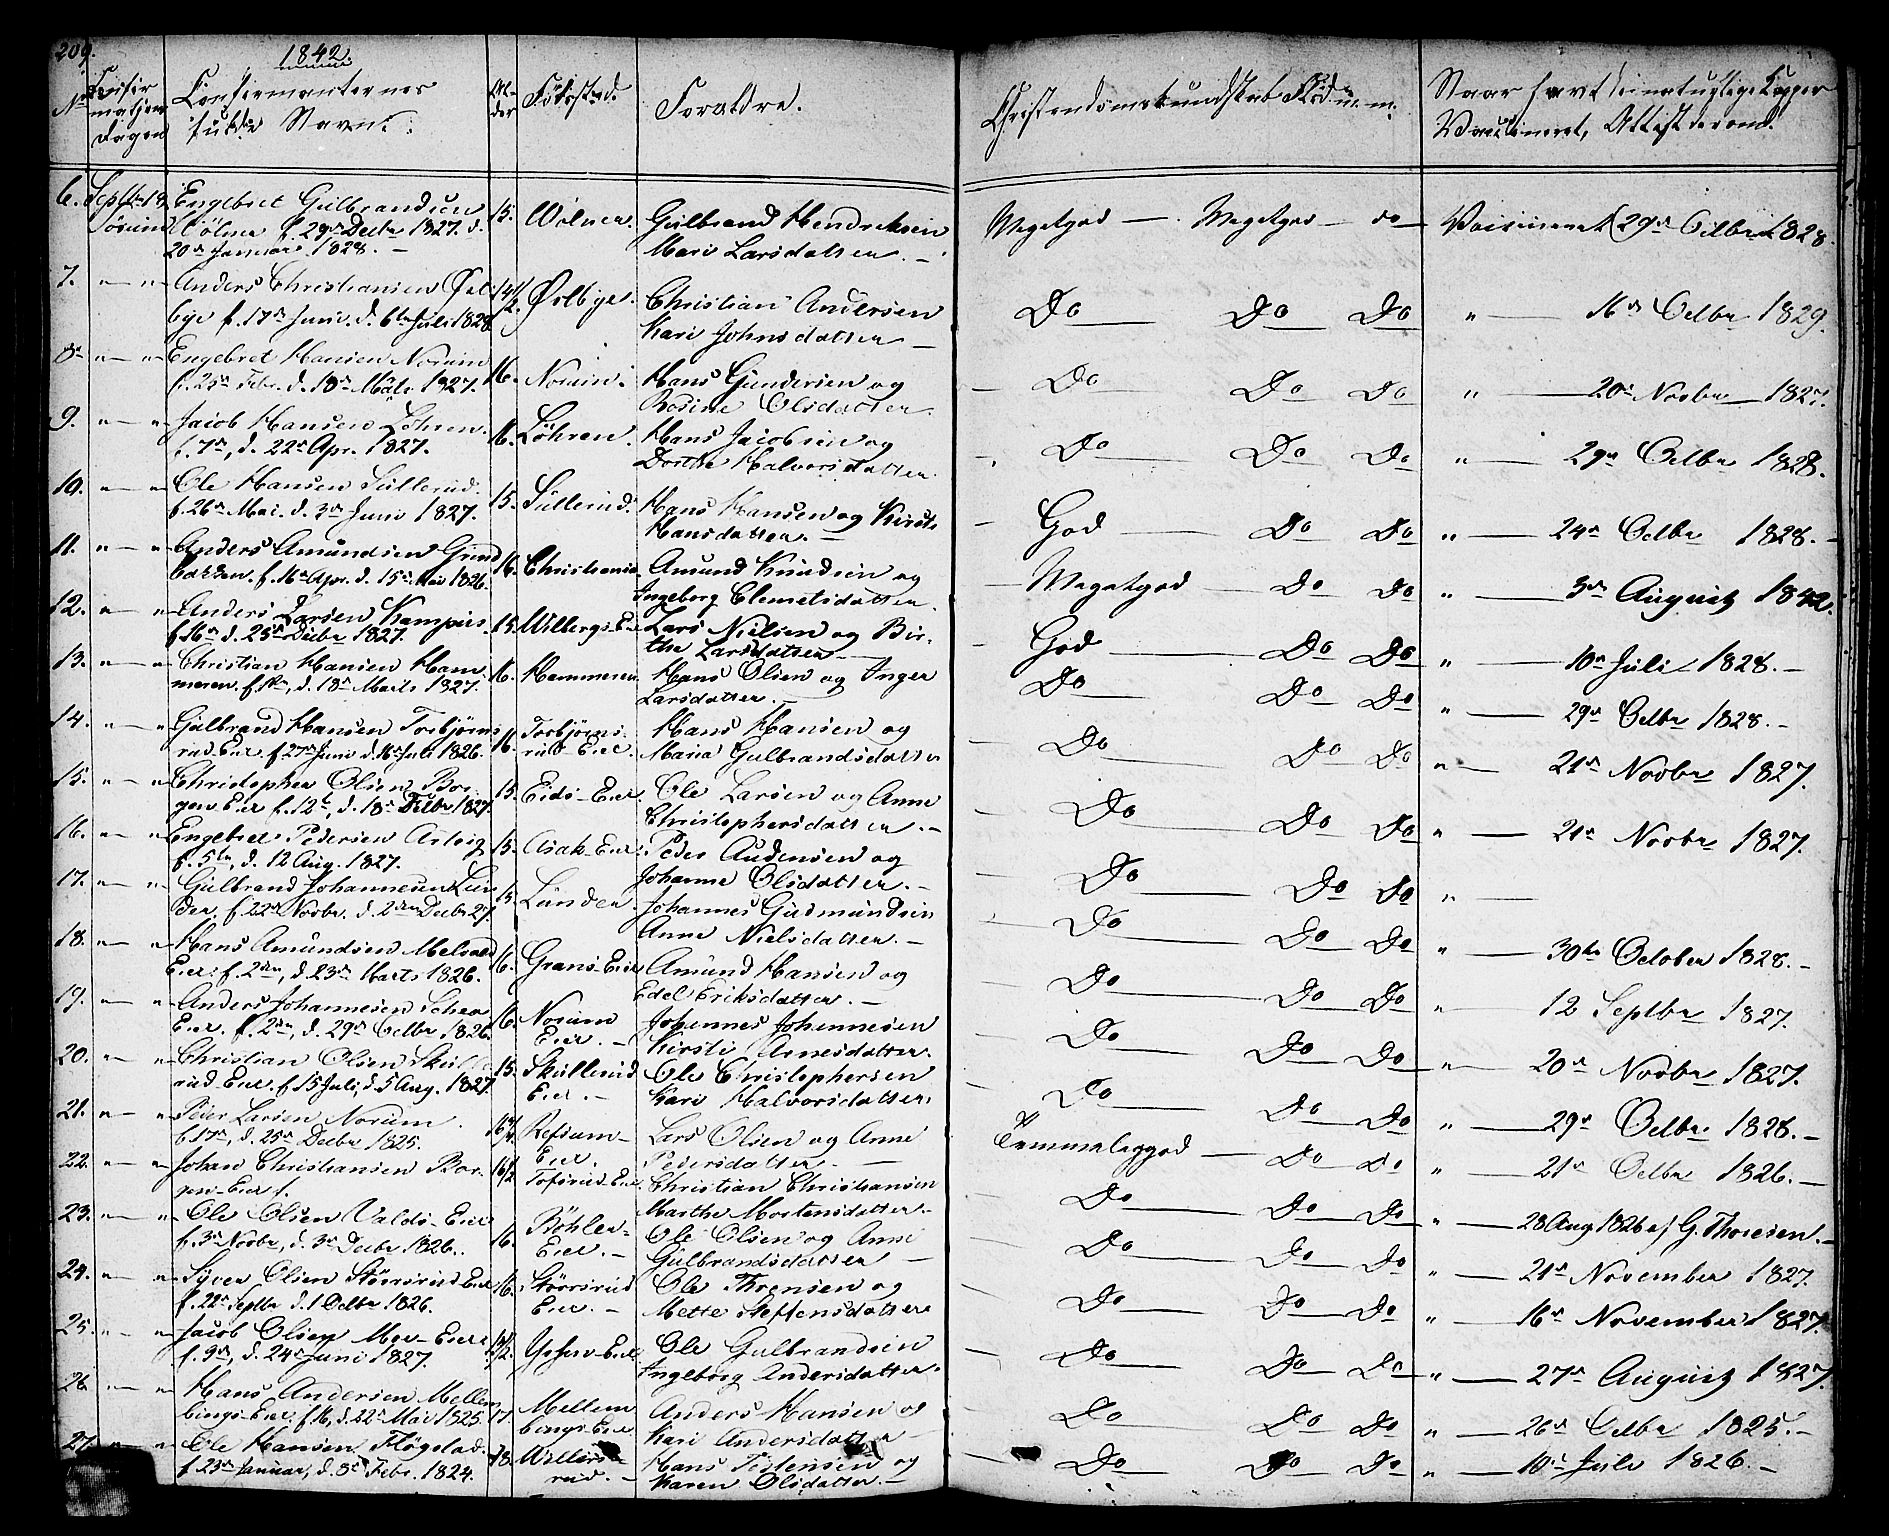 209.
1842.
No Confir Confirmanternes Al- Födested. Forældre. Christendomskundskab Flid
mations fulde Navne. der
Dagen Vaccineret, Attest derom.
6. Septbr 18 Engebret Gulbrandsen 15. Wölner. Gulbrand Hendriksen Megetgod — Megetgod — do Vaccineret 29de Octbr 1828.
Sörum Wölner f. 29de Decbr 1827. d. Mari Larsdatter. —
20de Januari 1828. —
7. " — " Anders Christiansen Øst 14 1/2. Østbye. Christian Andersen Do Do Do " — 16de Octbr 1829.
bye f. 17de Juni. d. 6te Juli 1828 Kari Johnsdatter —
8. " — " Engebret Hansen Norum 16. Norum. Hans Gundersen og Do Do Do " — 20de Novbr 1827.
f. 25de Febr. d. 18de Marts 1827. Rosine Olsdatter.
9. " — " Jacob Hansen Löhren. 16. Löhren. Hans Jacobsen og Do Do Do " — 29de Octbr 1828.
f. 7de, d. 22de Apr. 1827. Dorthe Halvorsdatter.
10. " — " Ole Hansen Sullerud. 15. Sullerud. Hans Hansen og Kirsti God Do Do " — 24de Octbr 1828. —
f. 26de Mai. d. 3de Juni 1827. Hansdatter. —
11. " — " Anders Amundsen Grind 16. Christiania Amund Knudsen og Megetgod Do Do " — 3de August 1842.
f. 16de Apr. d. 15de Mai 1826. Ingeborg Clemetsdatter.
12. " — " Anders Larsen Kampus. 15. Willbergs-Eie Lars Nielsen og Bir- God Do Do " — 10de Juli 1828. —
f. 16de d. 25de Decbr 1827. the Larsdatter —
13. " — " Christian Hansen Ham 16. Hammeren Hans Olsen og Inger Do Do Do " — 29de Octbr 1828. —
meren. f. 1ste, d. 18de Marts 1827. Larsdatter. —
14. " — " Gulbrand Hansen Torbjörns 16. Torbjörns- Hans Hansen og Do Do Do " — 21de Novbr 1827.
rud-Eier f. 27de Juni d. 16de Juli 1826. rud-Eier. Maria Gulbrandsdatter
15. " — " Christopher Olsen Bor- 15. Eids-Eier. Ole Larsen og Anne Do Do Do " — 21de Novbr 1827.
gen Eier f. 12te, d. 18de Febr 1827. Christophersdatter. —
16. " — " Engebret Pedersen 15. Asak-Eier. Peder Audensen og Do Do Do " —
f. 5te, d. 12 Aug. 1827. Johanne Olsdatter. —
17. " — " Gulbrand Johannesen Lun 15. Lunder. Johannes Gudmundsen Do Do Do " — 30te October 1828. —
der. f. 22de Novbr. d. 2den Decbr 27. Anne Nielsdatter. —
18. " — " Hans Amundsen 16. Grans-Eier Amund Hansen og Do Do Do " — 12 Septbr 1827.
Eier. f. 2den, d. 23de Marts 1826. Edel Eriksdatter. —
19. " — " Anders Johannesen 16. Norum Johannes Johannesen Do Do Do " — 20de Novbr 1827.
Eier. f. 2den, d. 29de Octbr 1826 Eier. — Kirsti Arnesdatter.
20. " — " Christian Olsen Skulle 15. Skullerud Ole Christophersen Do Do Do " — 29de Octbr 1828. —
rud-Eier. f. 15 Juli, d. 5 Aug. 1827 Eier. — Kari Halvorsdatter.
21. " — " Peder Larsen Norum. Refsum- Lars Olsen og Anne Temmeleggod — Do do " — 21de Octbr 1826. —
f. 17de, d. 25de Decbr 1825. Eier. Pedersdatter. —
22. " — " Johan Christiansen Bor- 16 1/2 Tofsrud-Eier. Christian Christiansen Do Do Do " — 28 Aug 1826 af G. Thoresen. —
gen-Eier f. Marthe Mortensdatter.
23. " — " Ole Olsen Valds-Eier 16. Böhler- Ole Olsen og Anne Do Do Do " — 21de November 1827.
f. 3de Novbr, d. 3de Decbr 1826. Eier. — Gulbrandsdatter —
24. " — " Syver Olsen Störrsrud Eier 16. Störrsrud Ole og Do Do Do " — 16de November 1827.
f. 22de Septbr d. 1 Octbr 1826. Eier. — Mette Steffensdatter
25. " — " Jacob Olsen Moe-Eier Ole Gulbrandsen Do Do Do " — 27de August 1827.
f. 9de, d. 24de Juni 1827. Ingeborg Andersdatter.
26. " — " Hans Andersen Mellem 17. Mellem Anders Hansen og Do Do Do " — 26de Octbr 1825. —
bings-Eier. f. 16, d. 22de Mai 1825. bings-Eier Kari Andersdatter —
27. " — " Ole Hansen Flögstad. 18. Willers- Hans Torstensen og Do Do Do " — 10de Juli 1826. —
f. 23de Januar, d. 8de Febr. 1824. rud. — Karen Olsdatter. —